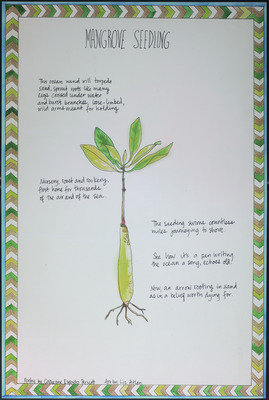 MANGROVE SEEDLING
The ocean wind will torpedo
seed, sprout roots like many
legs crossed under water
and burst branches, loose-limbed,
wild arms meant for holding.
Nursery, roost and rookery,
first home for thousands
of the air and of the sea.
The seedling swims countless
miles journeying to shore.
See how it's a pen writing
the ocean a song, echoes old.
Now an arrow rooting in sand
as in a belief worth dying for.
Poem by Catherine Art by Liz